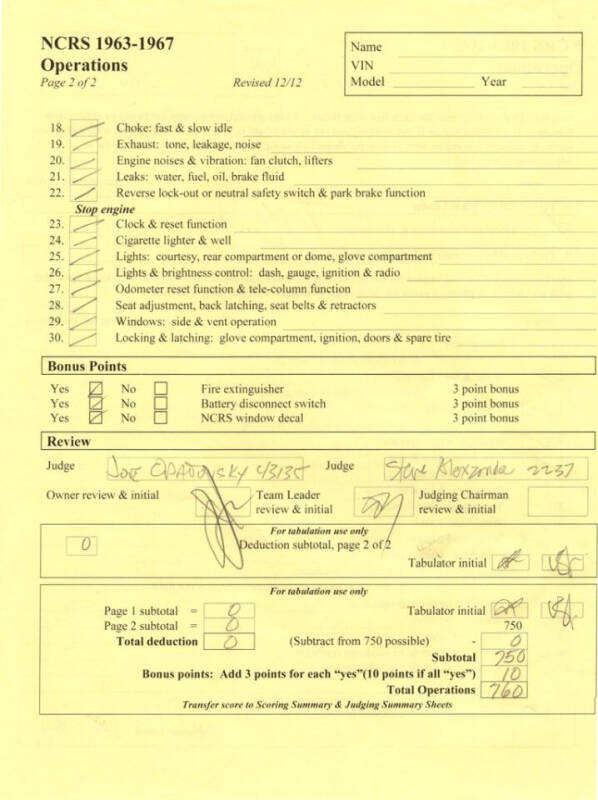 NCRS 1963-1967
Operations
Page 2 of 2 Revised 12/12
Name
VIN
Model Year
18. Choke: fast & slow idle
19. Exhaust: tone, leakage, noise
20. Engine noises & vibration: fan clutch, lifters
21. Leaks: water, fuel, oil, brake fluid
22. Reverse lock-out or neutral safety switch & park brake function
Stop engine
23. Clock & reset function
24. Cigarette lighter & well
25. Lights: courtesy, rear compartment or dome, glove compartment
26. Lights & brightness control: dash, gauge, ignition & radio
27. Odometer reset function & tele-column function
28. Seat adjustment, back latching, seat belts & retractors
29. Windows: side & vent operation
30. Locking & latching: glove compartment, ignition, doors & spare tire
Bonus Points
Yes No Fire extinguisher 3 point bonus
Yes No Battery disconnect switch 3 point bonus
Yes No NCRS window decal 3 point bonus
Review
Judge Judge Steve 2237
Owner review & initial Team Leader review & initial Judging Chairman review & initial
For tabulation use only
0 Deduction subtotal, page 2 of 2
Tabulator initial
For tabulation use only
Page 1 subtotal = 0 Tabulator initial
Page 2 subtotal = 0 750
Total deduction 0 (Subtract from 750 possible) - 0
Subtotal 750
Bonus points: Add 3 points for each "yes"(10 points if all "yes") 10
Total Operations 760
Transfer score to Scoring Summary & Judging Summary Sheets